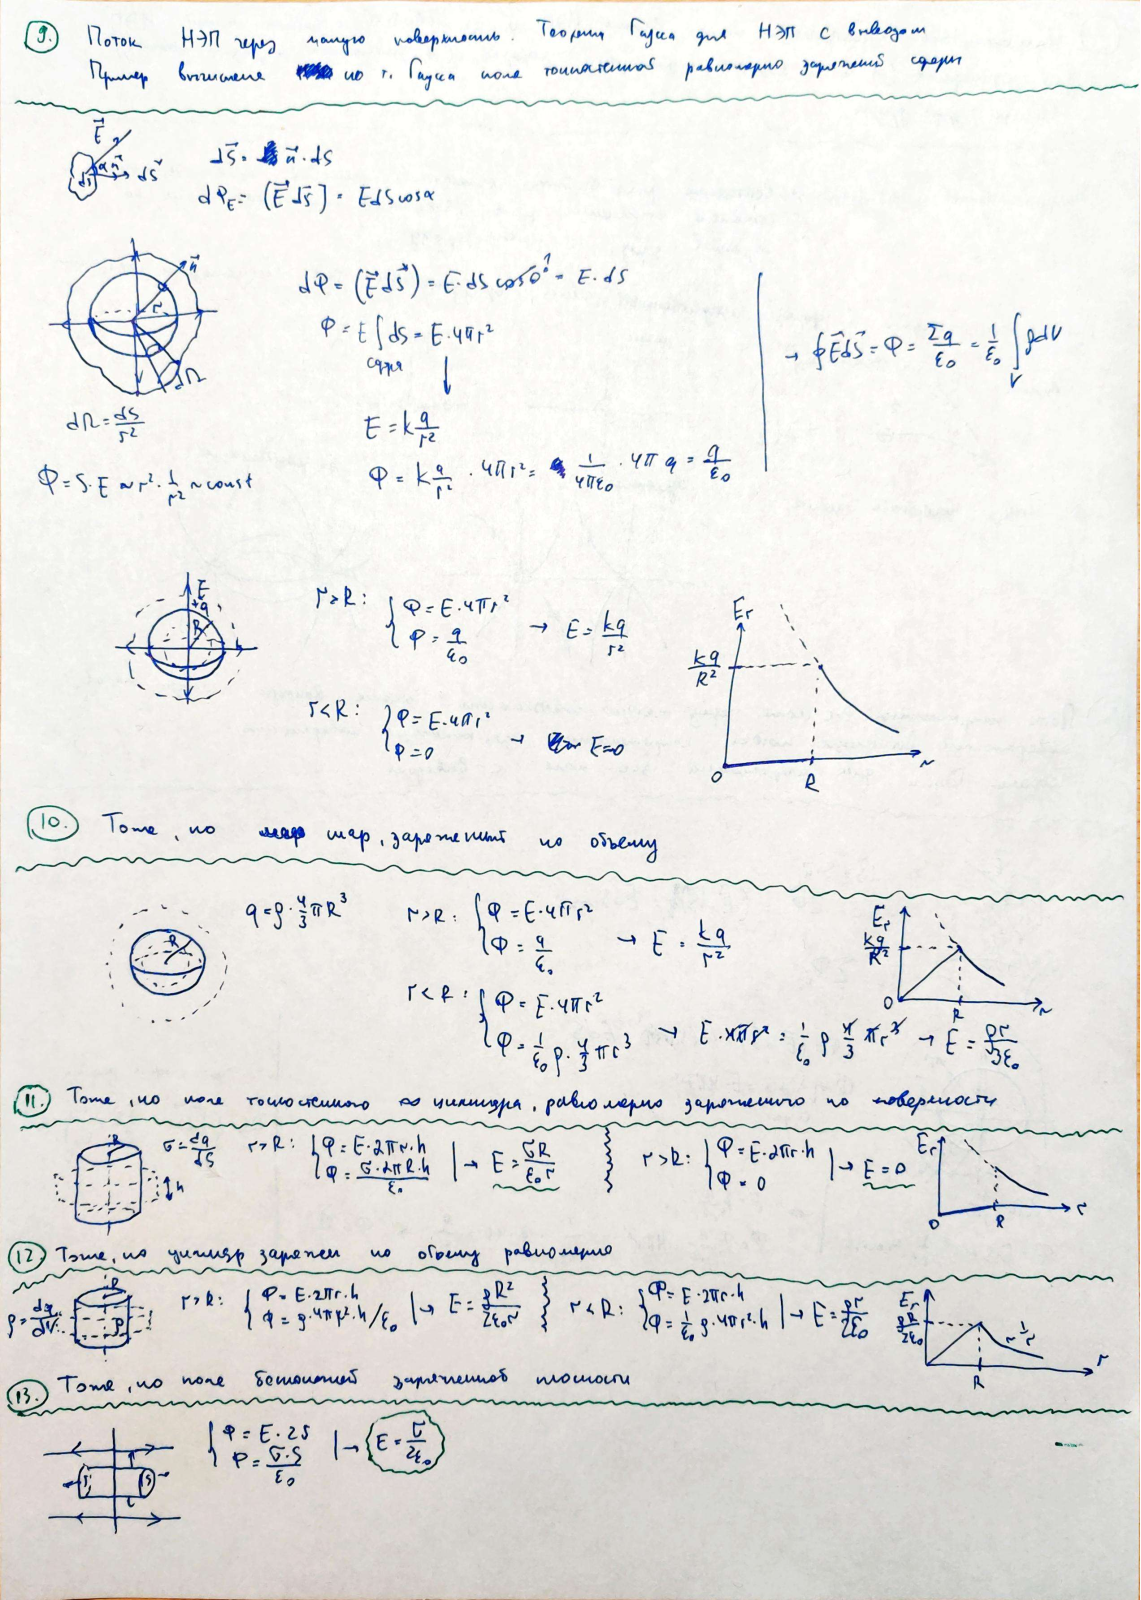 9. Поток НЭП через малую поверхность. Теорема Гаусса для НЭП с выводом
Пример вычисления по т. Гаусса поле тонкостенной равномерно заряженной сферы
E⃗
α n⃗ dS⃗
dS
dS⃗ = n⃗ · dS
dΦ_E = (E⃗ dS⃗) = E dS cosα
n⃗
r
dΩ
dΩ = dS/r²
Φ = S · E ~ r² · 1/r² ~ const
dΦ = (E⃗ dS⃗) = E · dS cos0 ¹ = E · dS
Φ = E ∫ dS = E · 4πr²
сфера
↓
E = k q/r²
Φ = k q/r² · 4πr² = 1/4πε₀ · 4π q = q/ε₀
→ ∮ E⃗ dS⃗ = Φ = Σq/ε₀ = 1/ε₀ ∫ ρdV
V
E
+q
R
r > R: { Φ = E · 4πr²
Φ = q/ε₀ → E = kq/r²
r < R: { Φ = E · 4πr²
Φ = 0 → E = 0
E_r
kq/R²
0 R r
10. Тоже, но шар, заряженный по объему
R
q = ρ · 4/3 πR³
r > R: { Φ = E · 4πr²
Φ = q/ε₀ → E = kq/r²
r < R: { Φ = E · 4πr²
Φ = 1/ε₀ ρ · 4/3 πr³ → E · 4πr² = 1/ε₀ ρ 4/3 πr³ → E = ρr/3ε₀
E_r
kq/R²
0 R r
11. Тоже, но поле тонкостенного цилиндра, равномерно заряженного по поверхности
R
h
σ = dq/dS
r > R: { Φ = E · 2πr · h
Φ = σ · 2πR · h/ε₀ | → E = σR/ε₀r
r > R: { Φ = E · 2πr · h
Φ = 0 | → E = 0
E_r
0 R r
12. Тоже, но цилиндр заряжен по объему равномерно
ρ = dq/dV
R
ρ
r > R: { Φ = E · 2πr · h
Φ = ρ · 4πR² · h/ε₀ | → E = ρR²/2ε₀r
r < R: { Φ = E · 2πr · h
Φ = 1/ε₀ ρ · 4πr² · h | → E = ρr/2ε₀
E_r
ρR/2ε₀
~ 1/r
R r
13. Тоже, но поле бесконечной заряженной плоскости
S S
{ Φ = E · 2S
Φ = σ · S/ε₀ | → E = σ/2ε₀